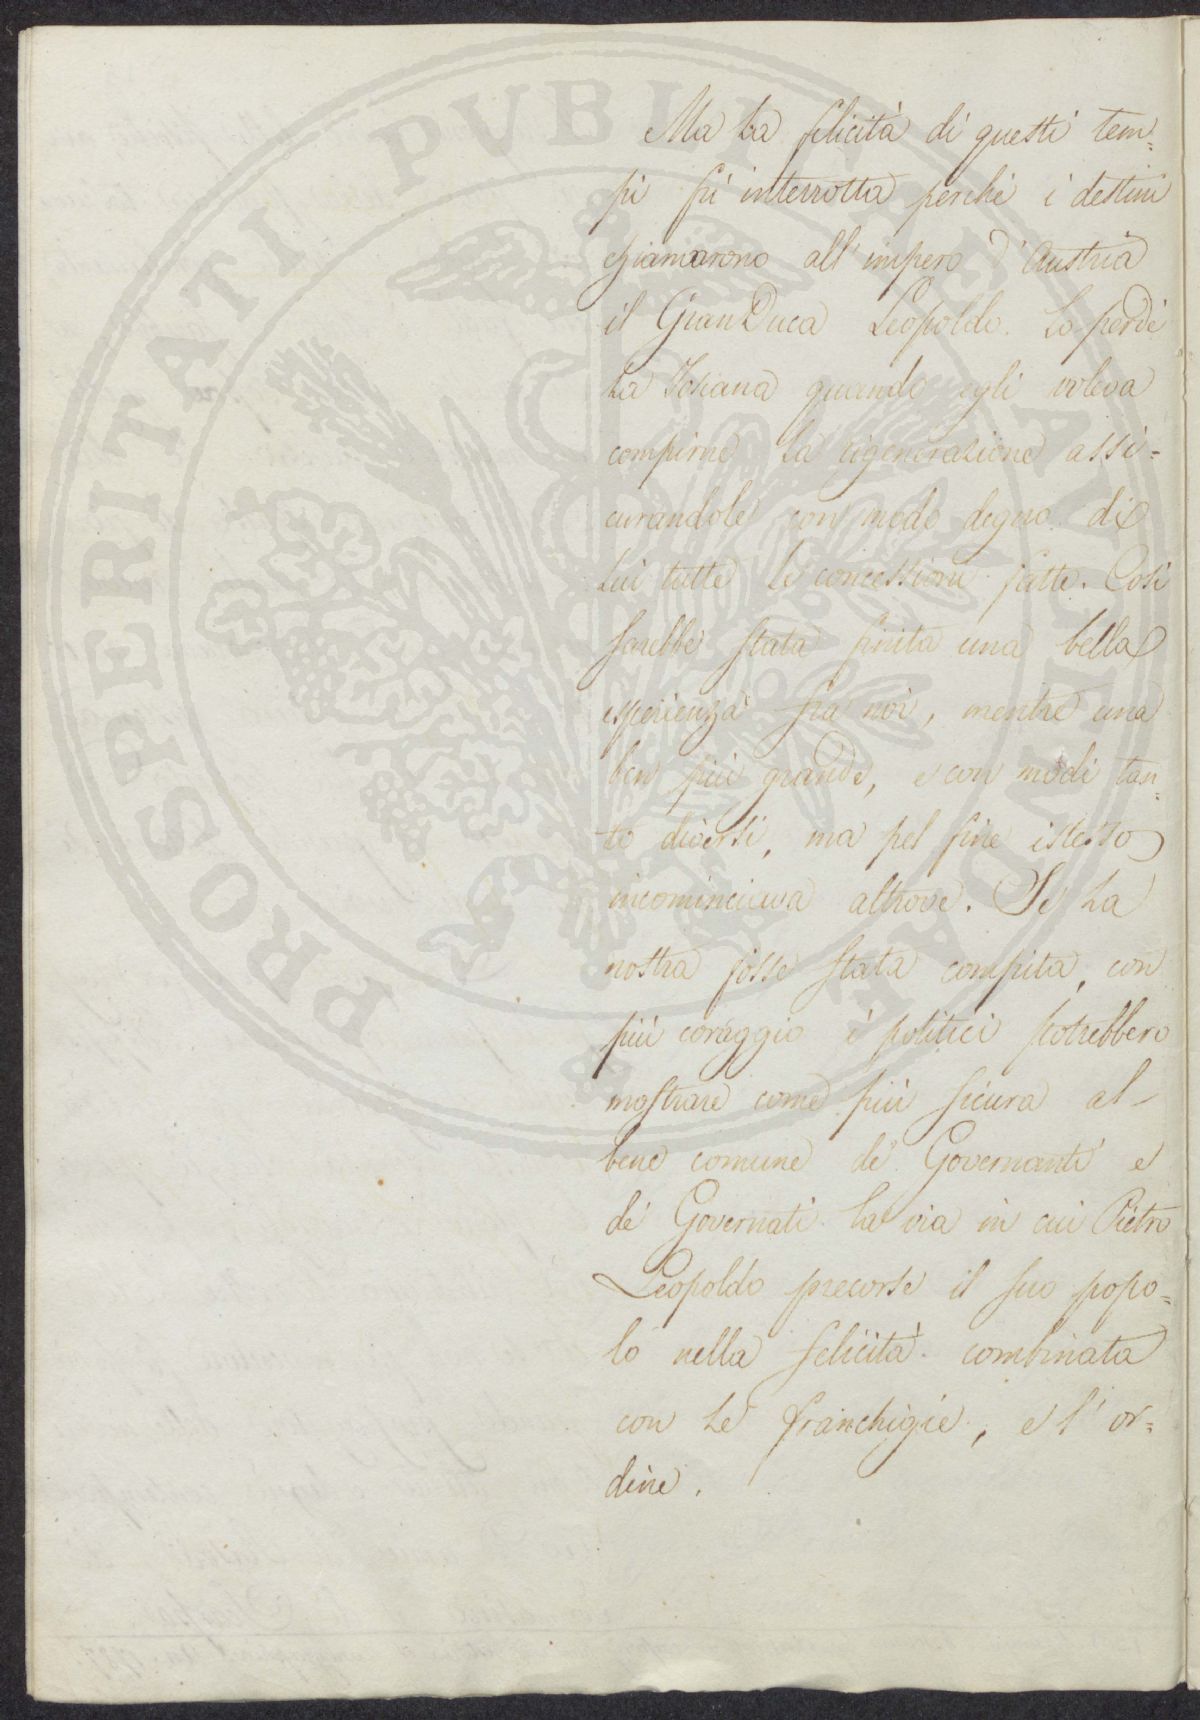 PROSPERITATI PVBLICAE AVGENDAE
Ma la felicità di questi tem=
pi fù interrotta perchè i destini
chiamarono all'impero d'Austria
il GranDuca Leopoldo. Lo perdè
la Toscana quando egli voleva
compirne la rigenerazione assi=
curandole con modo degno di
Lui tutte le concessioni fatte. Così
sarebbe stata finita una bella
esperienza fra noi, mentre una
ben più grande, e con modi tan=
to diversi, ma pel fine istesso
incominciava altrove. Se la
nostra fosse stata compita, con
più coraggio i politici potrebbero
mostrare come più sicura al
bene comune de' Governanti e
de' Governati la via in cui Pietro
Leopoldo precorse il suo popo=
lo nella felicità combinata
con le franchigie, e l'or=
dine.